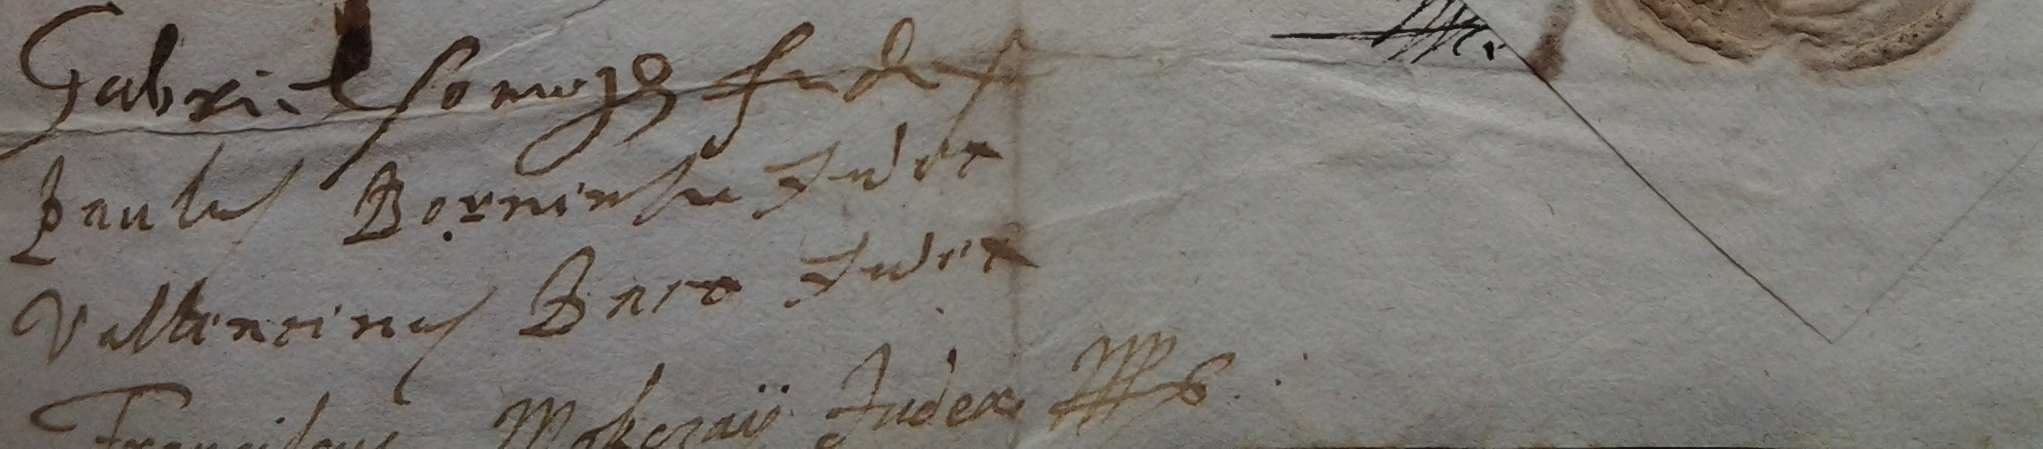 Gabriel Somogÿ Judex
Paulus Borninsza Judex
Vallentinus Baco Judex
Franciscus Mokcsaÿ Judex